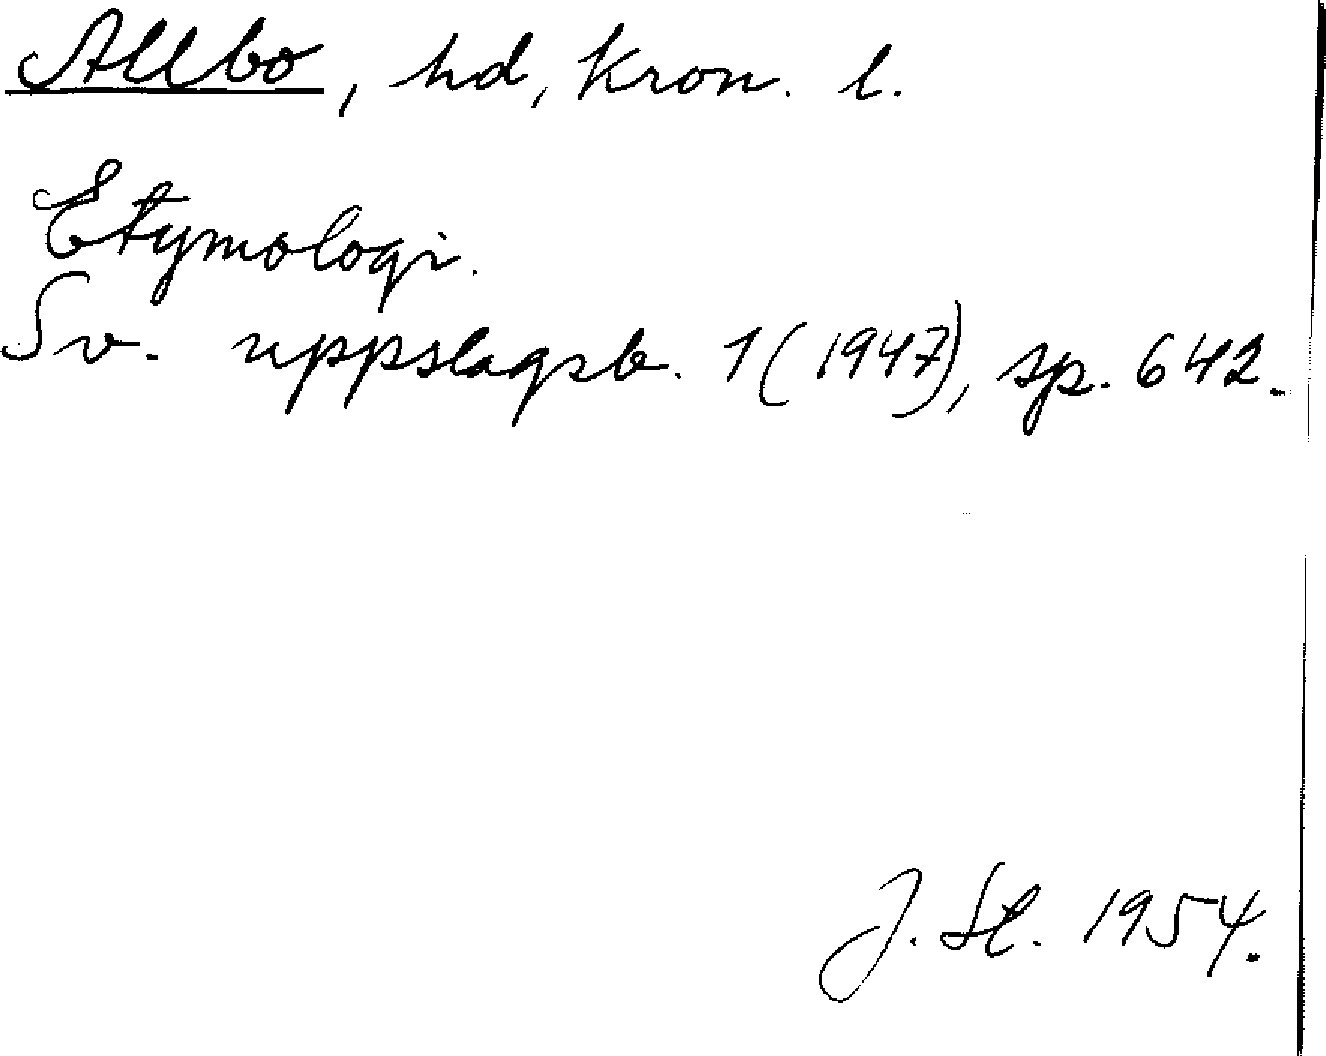 Allbo, hd, Kron. l.
Etymologi.
Sv. uppslagsb. 1 (1947), sp. 642.
J. St. 1954.